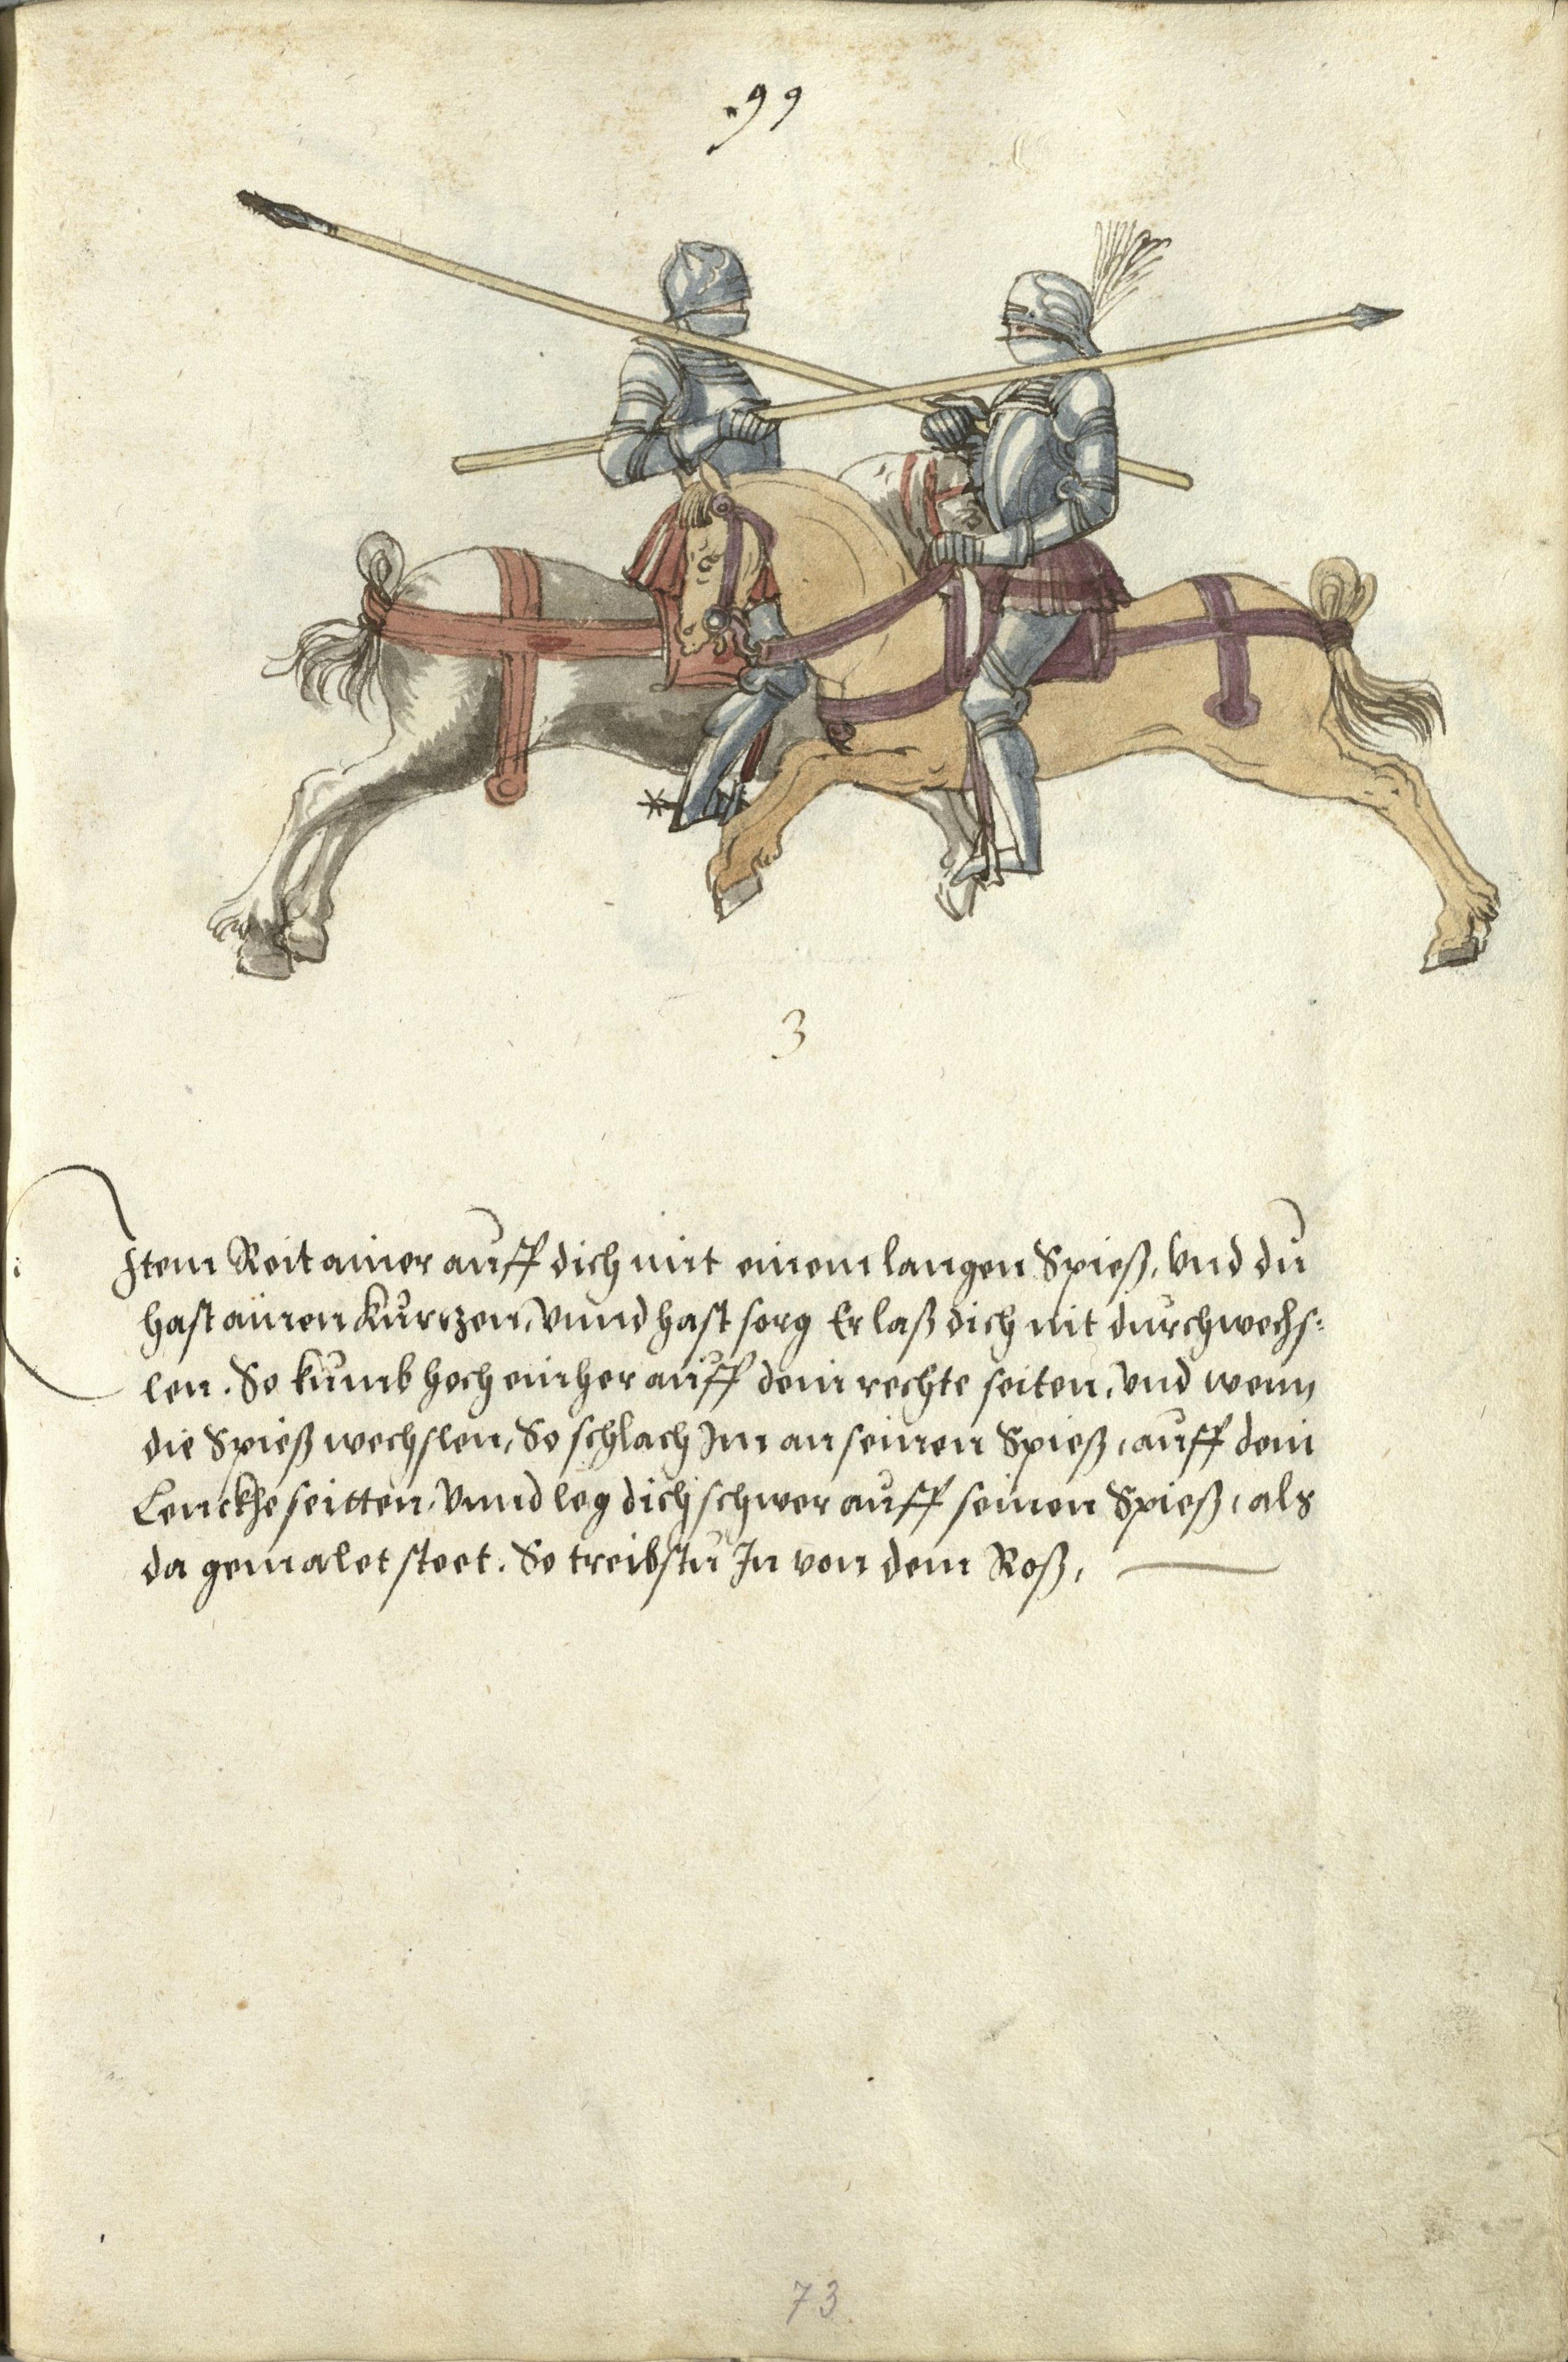 .99
3
Item Reit ainer auff dich mit einem langen Spieß, Vnd du
hast ainen kurczen, Vnnd hast sorg Er laß dich nit durchwechs:
len. So kumb hoch einher auff dein rechte seiten, Vnd wenn
die Spieß wechslen, So schlach Im an seinen Spieß, auff dein
Lenckhe seitten, Vnnd leg dich schwer auff seinen Spieß, als
da gemalet steet. So treibstu In von dem Roß,
73